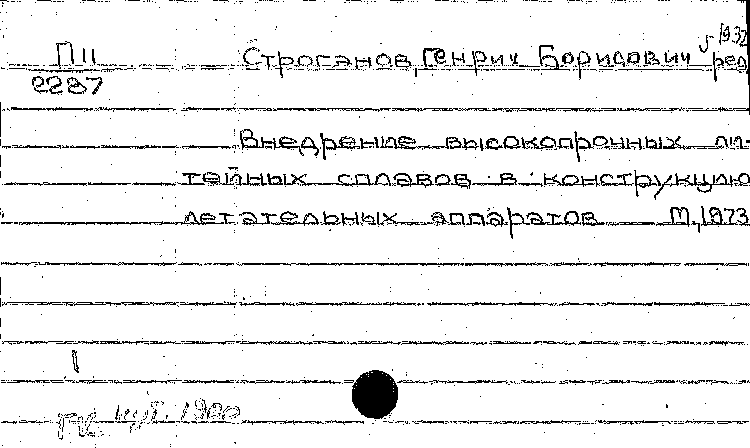 П11 Строганов, Генрих Борисович 1932
2287 ред
Внедрение высокопрочных ли-
тейных сплавов в конструкцию
летательных аппаратов М., 1973
1
ГК 1980